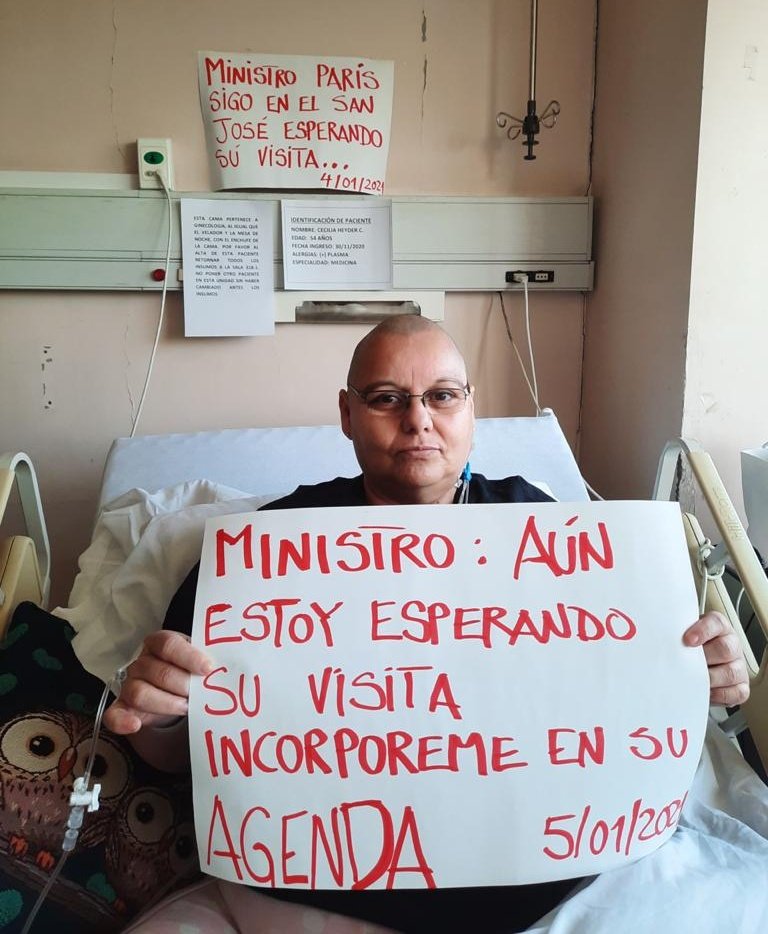 MINISTRO PARÍS
SIGO EN EL SAN
JOSÉ ESPERANDO
SÚ VISITA...
4/01/2021
ESTA CAMA PERTENECE A
GINECOLOGIA, AL IGUAL QUE
EL VELADOR Y LA MESA DE
NOCHE, CON EL ENCHUFE DE
LA CAMA. POR FAVOR AL
ALTA DE ESTA PACIENTE
RETORNAR TODOS LOS
INSUMOS A LA SALA
NO PONER OTRO PACIENTE
EN ESTA UNIDAD SIN HABER
CAMBIADO ANTES LOS
INSUMOS
IDENTIFICACIÓN DE PACIENTE
NOMBRE: CECILIA HEYDER C.
EDAD: 54 AÑOS
FECHA INGRESO: 30/11/2020
ALERGIAS: (+) PLASMA
ESPECIALIDAD: MEDICINA
MINISTRO: AÚN
ESTOY ESPERANDO
SU VISITA
INCORPOREME EN SU
AGENDA 5/01/2021